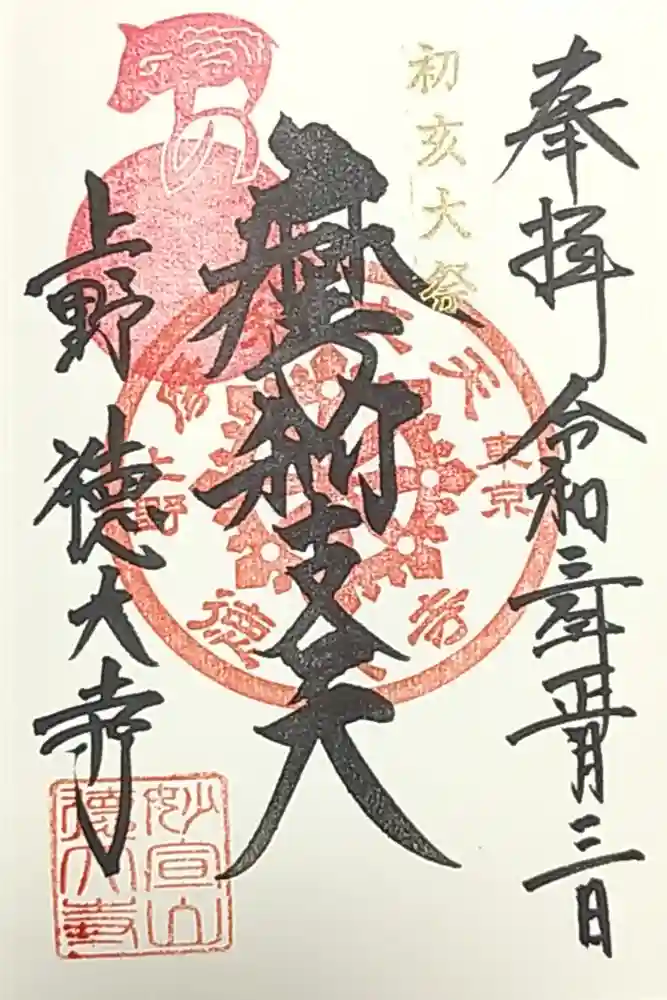 奉拝 令和三年正月三日
初亥大祭
摩利支天
上野 徳大寺
東京
上野
徳大寺
妙宣山
徳大寺